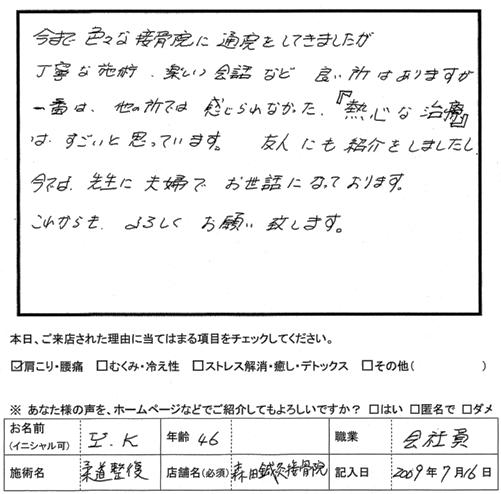 今まで 色々な接骨院に 通院をしてきましたが
丁寧な施術、楽しい会話など 良い所はありますが
一番は、他の所では 感じられなかった、『熱心な治療』
は、すごいと思っています。 友人にも紹介をしましたし、
今では、先生に 夫婦で お世話になっております。
これからも、よろしく お願い致します。
本日、ご来店された理由に当てはまる項目をチェックしてください。
☑肩こり・腰痛 □むくみ・冷え性 □ストレス解消・癒し・デトックス □その他( )
※ あなた様の声を、ホームページなどでご紹介してもよろしいですか? □はい □匿名で □ダメ
お名前 (イニシャル可) Y.K 年齢 46 職業 会社員
施術名 柔道整復 店舗名(必須) 森田鍼灸接骨院 記入日 2009年7月16日